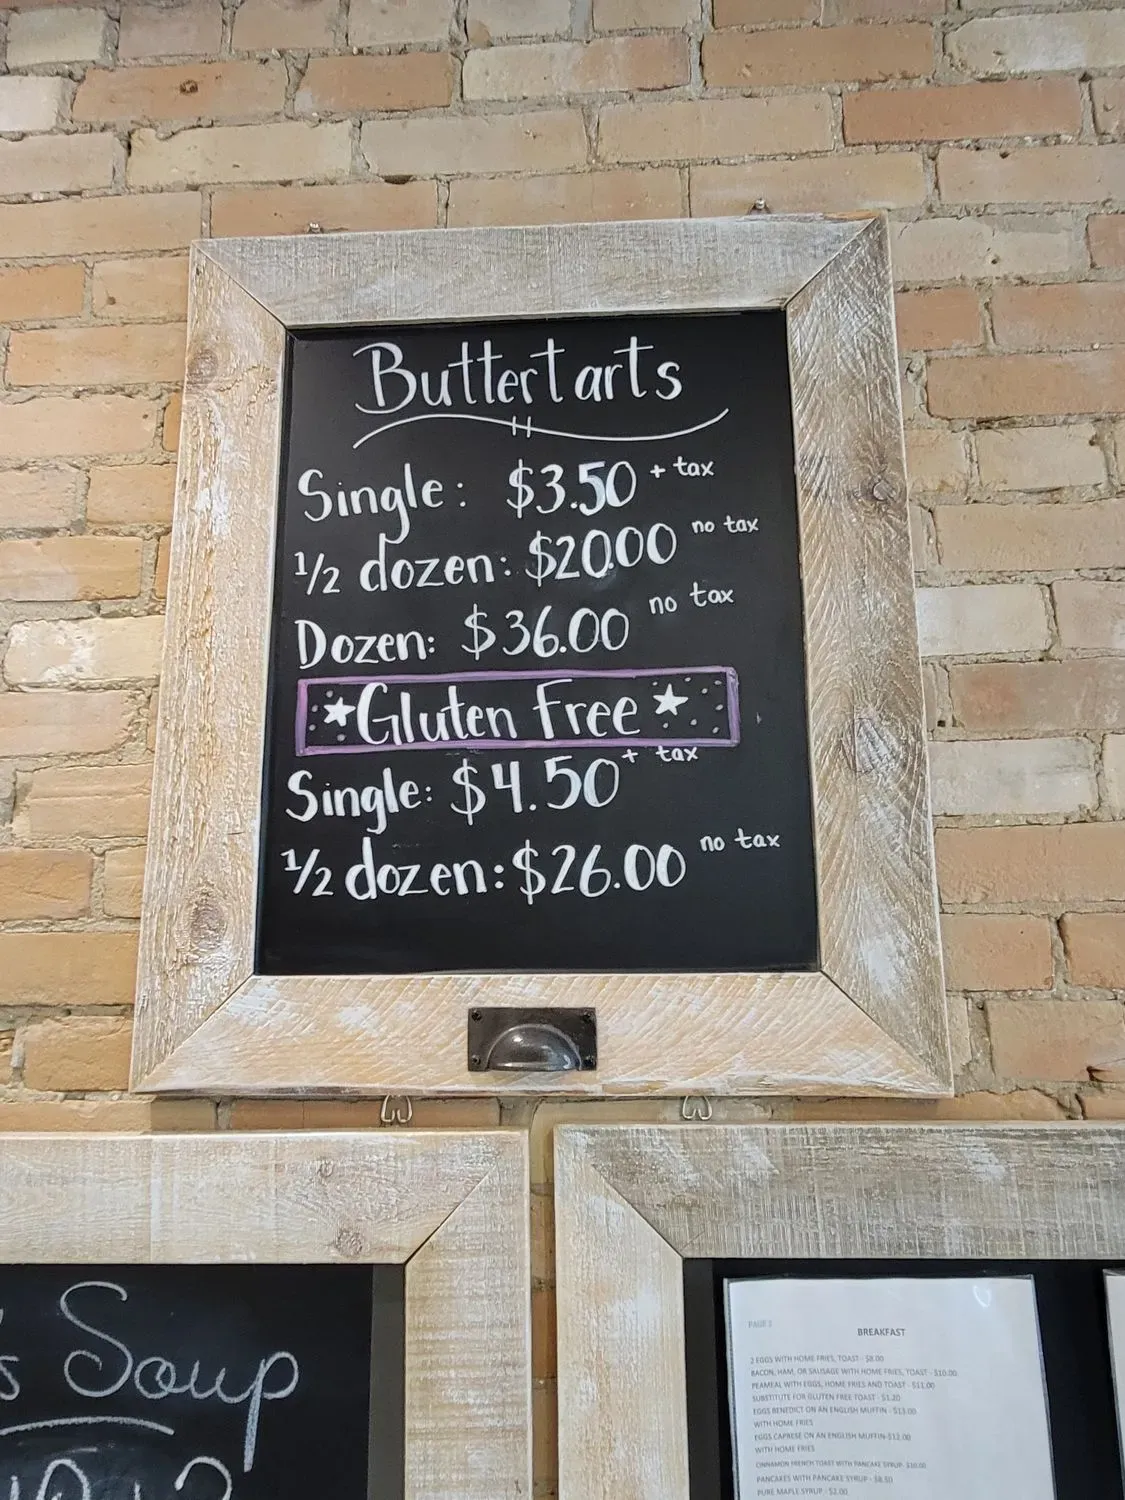 Buttertarts
Single: $3.50 + tax
1/2 dozen: $20.00 no tax
Dozen: $36.00 no tax
*Gluten Free*
Single: $4.50 + tax
1/2 dozen: $26.00 no tax
s Soup
BREAKFAST
2 EGGS WITH HOME FRIES, TOAST - $8.00
BACON, HAM, OR SAUSAGE WITH HOME FRIES, TOAST - $10.00
PEAMEAL WITH EGGS, HOME FRIES AND TOAST - $11.00
SUBSTITUTE FOR GLUTEN FREE TOAST - $1.20
EGGS BENEDICT ON AN ENGLISH MUFFIN - $13.00
WITH HOME FRIES
EGGS CAPRESE ON AN ENGLISH MUFFIN-$12.00
WITH HOME FRIES
CINNAMON FRENCH TOAST WITH PANCAKE SYRUP- $10.00
PANCAKES WITH PANCAKE SYRUP - $8.50
PURE MAPLE SYRUP - $2.00